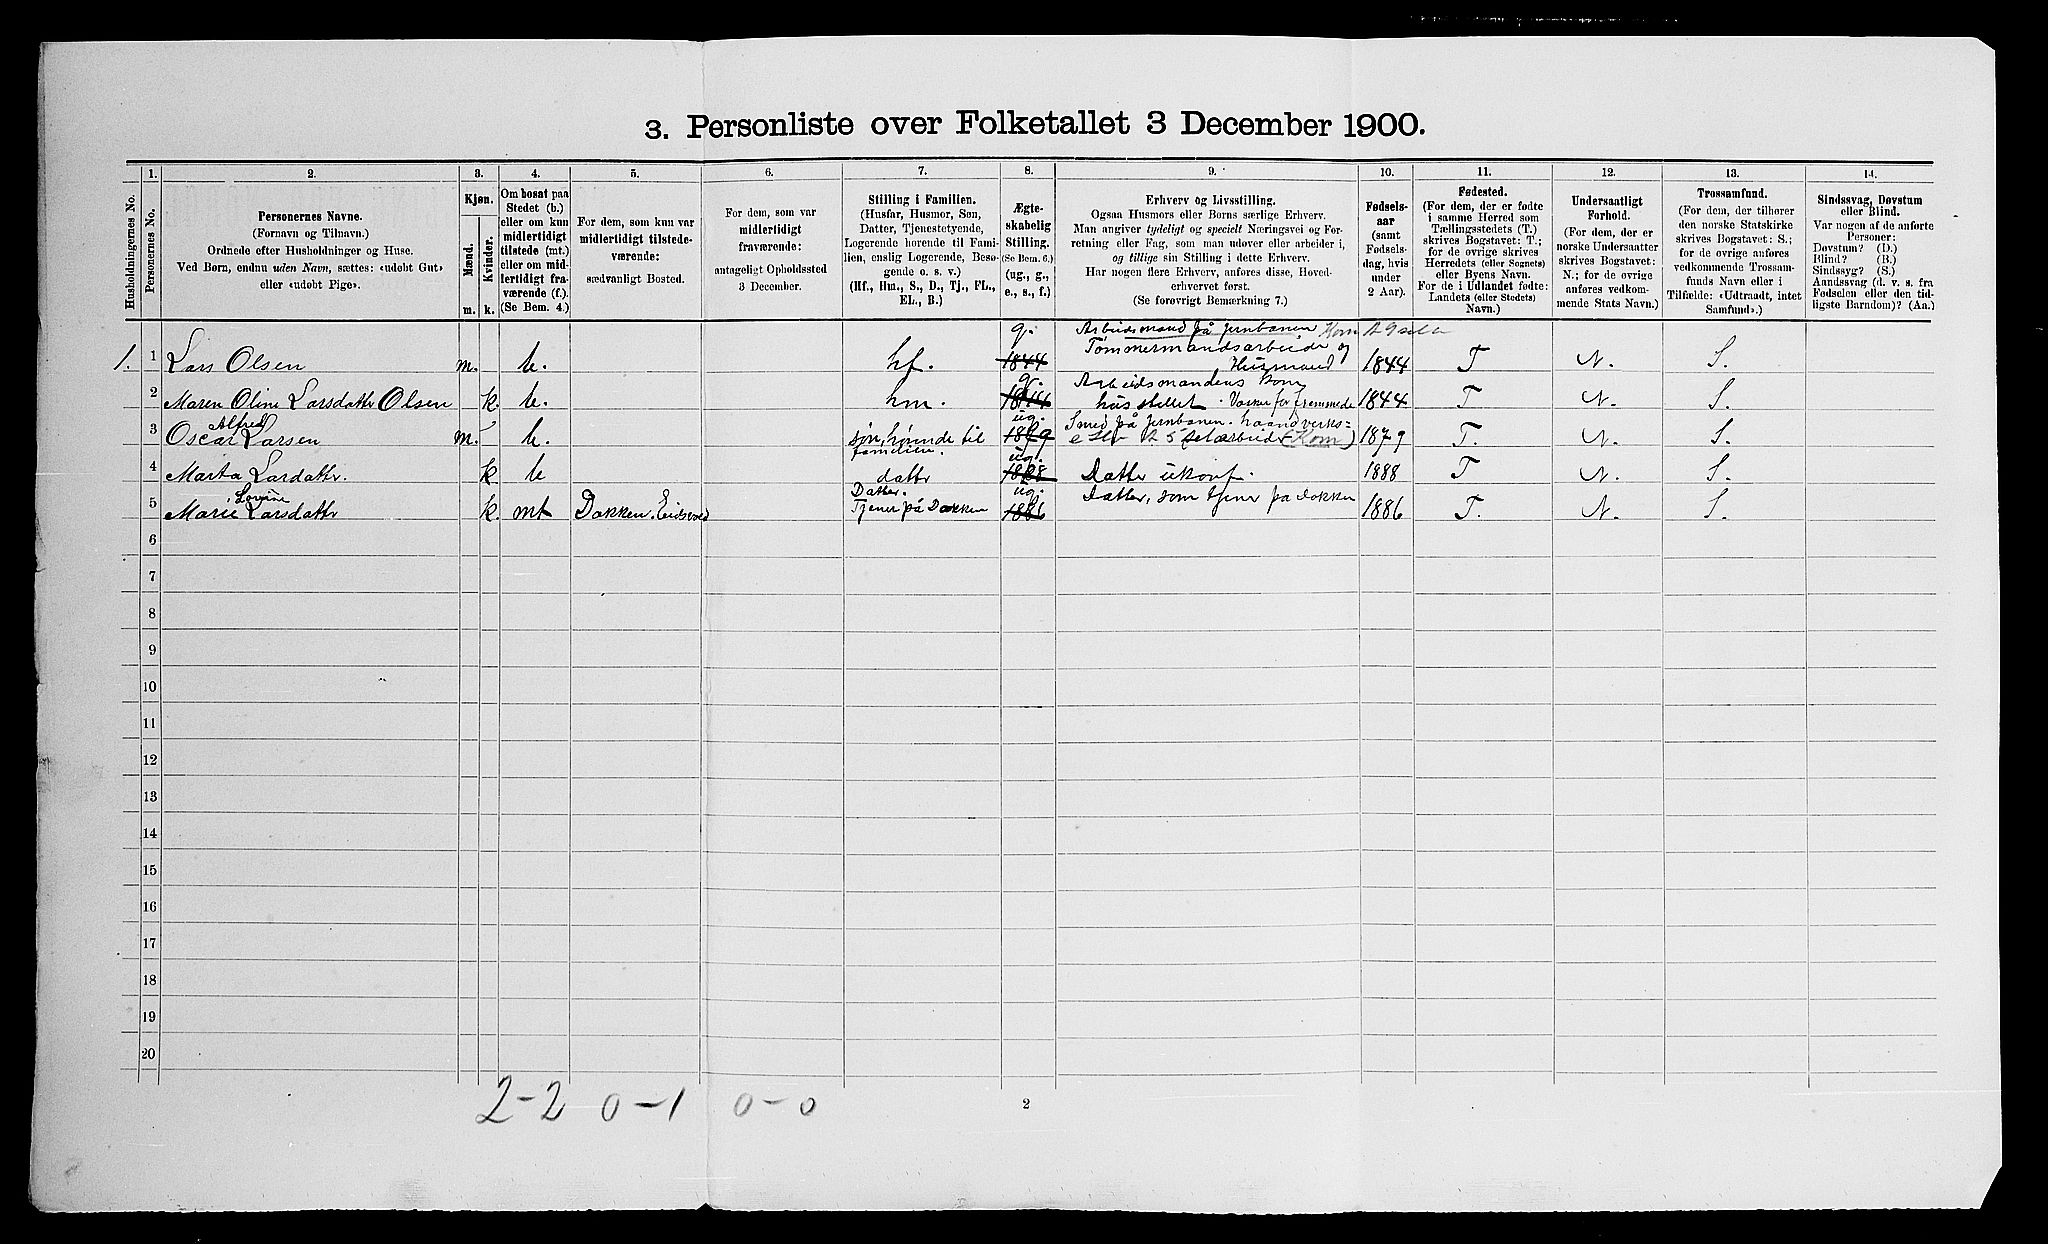 3. Personliste over Folketallet 3 December 1900.
Husholdningernes No.
1.
Personernes No.
2.
Personernes Navne.
(Fornavn og Tilnavn.)
Ordnede efter Husholdninger og Huse.
Ved Børn, endnu uden Navn, sættes: «udøbt Gut»
eller «udøbt Pige».
3.
Kjøn.
Mænd.
Kvinder.
m.
k.
4.
Om bosat paa
Stedet (b.)
eller om kun
midlertidigt
tilstede (mt.)
eller om mid-
lertidigt fra-
værende (f.).
(Se Bem. 4.)
5.
For dem, som kun var
midlertidigt tilstede-
værende:
sædvanligt Bosted.
6.
For dem, som var
midlertidigt
fraværende:
antageligt Opholdssted
3 December.
7.
Stilling i Familien.
(Husfar, Husmor, Søn,
Datter, Tjenestetyende,
Logerende hørende til Fami-
lien, enslig Logerende, Besø-
gende o. s. v.)
(Hf., Hm., S., D., Tj., FL.,
EL., B.)
8.
Ægte-
skabelig
Stilling.
(Se Bem. 6.)
(ug., g.,
e., s., f.)
9.
Erhverv og Livsstilling.
Ogsaa Husmors eller Børns særlige Erhverv.
Man angiver tydeligt og specielt Næringsvei og For-
retning eller Fag, som man udøver eller arbeider i,
og tillige sin Stilling i dette Erhverv.
Har nogen flere Erhverv, anføres disse, Hoved-
erhvervet først.
(Se forøvrigt Bemærkning 7.)
10.
Fødsels-
aar
(samt
Fødsels-
dag, hvis
under
2 Aar).
11.
Fødested.
(For dem, der er fødte
i samme Herred som
Tællingsstedets (T.)
skrives Bogstavet: T.;
for de øvrige skrives
Herredets (eller Sognets)
eller Byens Navn.
For de i Udlandet fødte:
Landets (eller Stedets)
Navn.)
12.
Undersaatligt
Forhold.
(For dem, der er
norske Undersaatter
skrives Bogstavet:
N.; for de øvrige
anføres vedkom-
mende Stats Navn.)
13.
Trossamfund.
(For dem, der tilhører
den norske Statskirke
skrives Bogstavet: S.;
for de øvrige anføres
vedkommende Trossam-
funds Navn eller i
Tilfælde: «Udtraadt, intet
Samfund».)
14.
Sindssvag, Døvstum
eller Blind.
Var nogen af de anførte
Personer:
Døvstum? (D.)
Blind? (B.)
Sindssyg? (S.)
Aandssvag (d. v. s. fra
Fødselen eller den tid-
ligste Barndom)? (Aa.)
g. Arbeidsmand på jernbanen Kom
Tømmermandsarbeide og
1. 1 Lars Olsen m. b. hf. 1844 Husmand 1844 T N. S.
g. Arbeidsmandens kom
2 Maren Oline Larsdattr Olsen k b. hm. 1844 husstellet. Vasker for fremmede 1844 T N. S.
Alfred ug. Smed på jernbanen. haandverks=
3 Oscar Larsen m. b. søn, hørende til 1879 (Kom) 1879 T. N. S.
familien. ug.
4 Marta Larsdattr. k b datter 1888 Datter ukonf. 1888 T N. S.
Lovine Datter. ug. Datter, som tjener på Dokken
5 Marie Larsdattr k. mt Dokken. Eidsvold Tjener på Dokken 1886 1886 T. N. S.
6
7
8
9
10
11
12
13
14
15
16
17
18
19
20
2-2 0-1 0-0
2